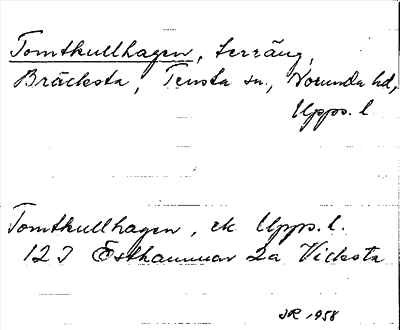 Tomtkullhagen, terräng,
Bräcksta, Tensta sn, Norunda hd,
Upps. l.
Tomtkullhagen, ek Upps. l.
12 I Östhammar 2a Vicksta
1958